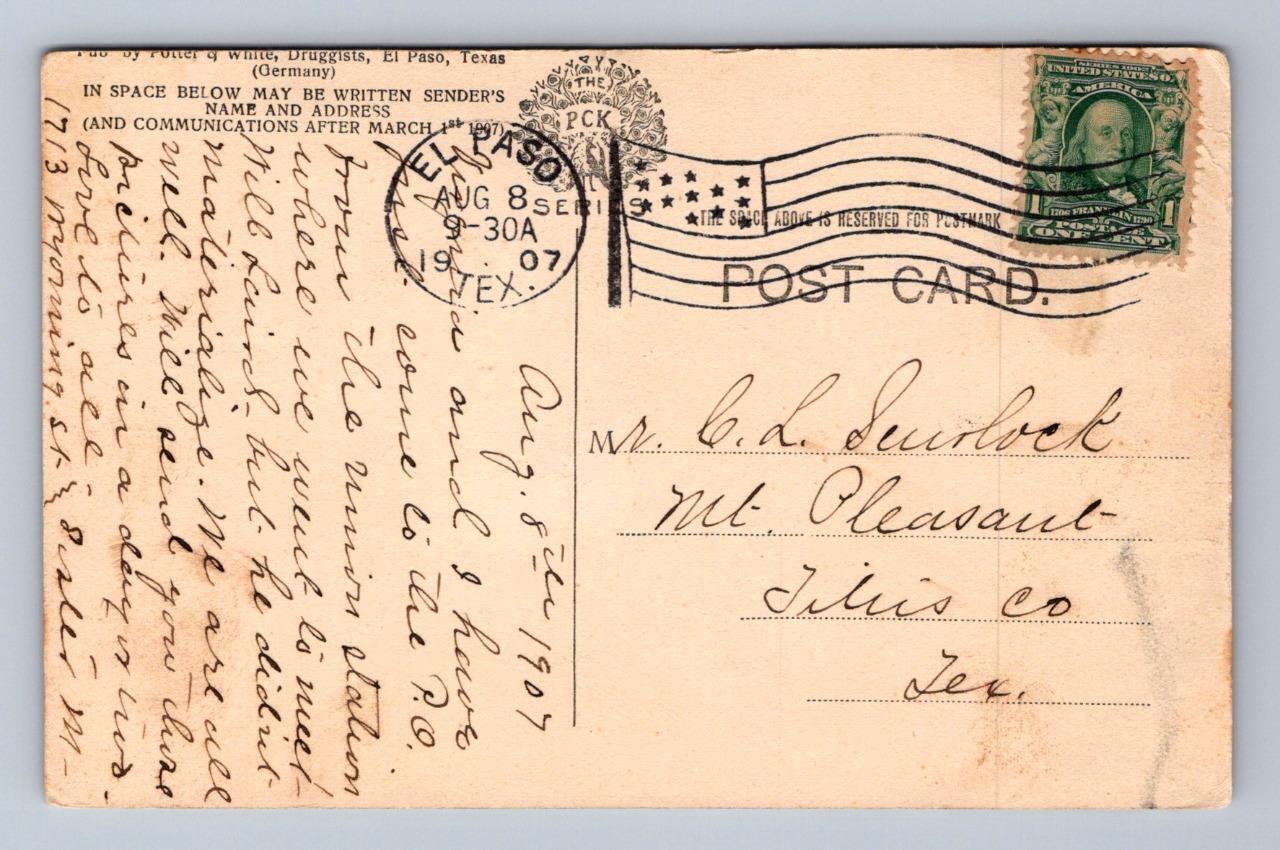 Pub. by Potter & White, Druggists, El Paso, Texas
(Germany)
IN SPACE BELOW MAY BE WRITTEN SENDER'S
NAME AND ADDRESS
(AND COMMUNICATIONS AFTER MARCH 1st 1907)
THE
PCK
SERIES
EL PASO
AUG 8
9-30A
1907
TEX.
THE SPACE ABOVE IS RESERVED FOR POSTMARK
POST CARD.
SERIES 1902
UNITED STATES OF
AMERICA
1 1706 FRANKLIN 1790 1
POSTAGE
ONE CENT
Mr. C. L. Scurlock
Mt. Pleasant
Titus Co
Tex.
Aug. 8th 1907
and I have
just come to the P.O.
from the union station
where we went to meet
Will Laird - but he didn't
materialize. We are all
well. Will send you those
pictures in a day or two.
Love to all
Sister M-
1713 Wyoming St.